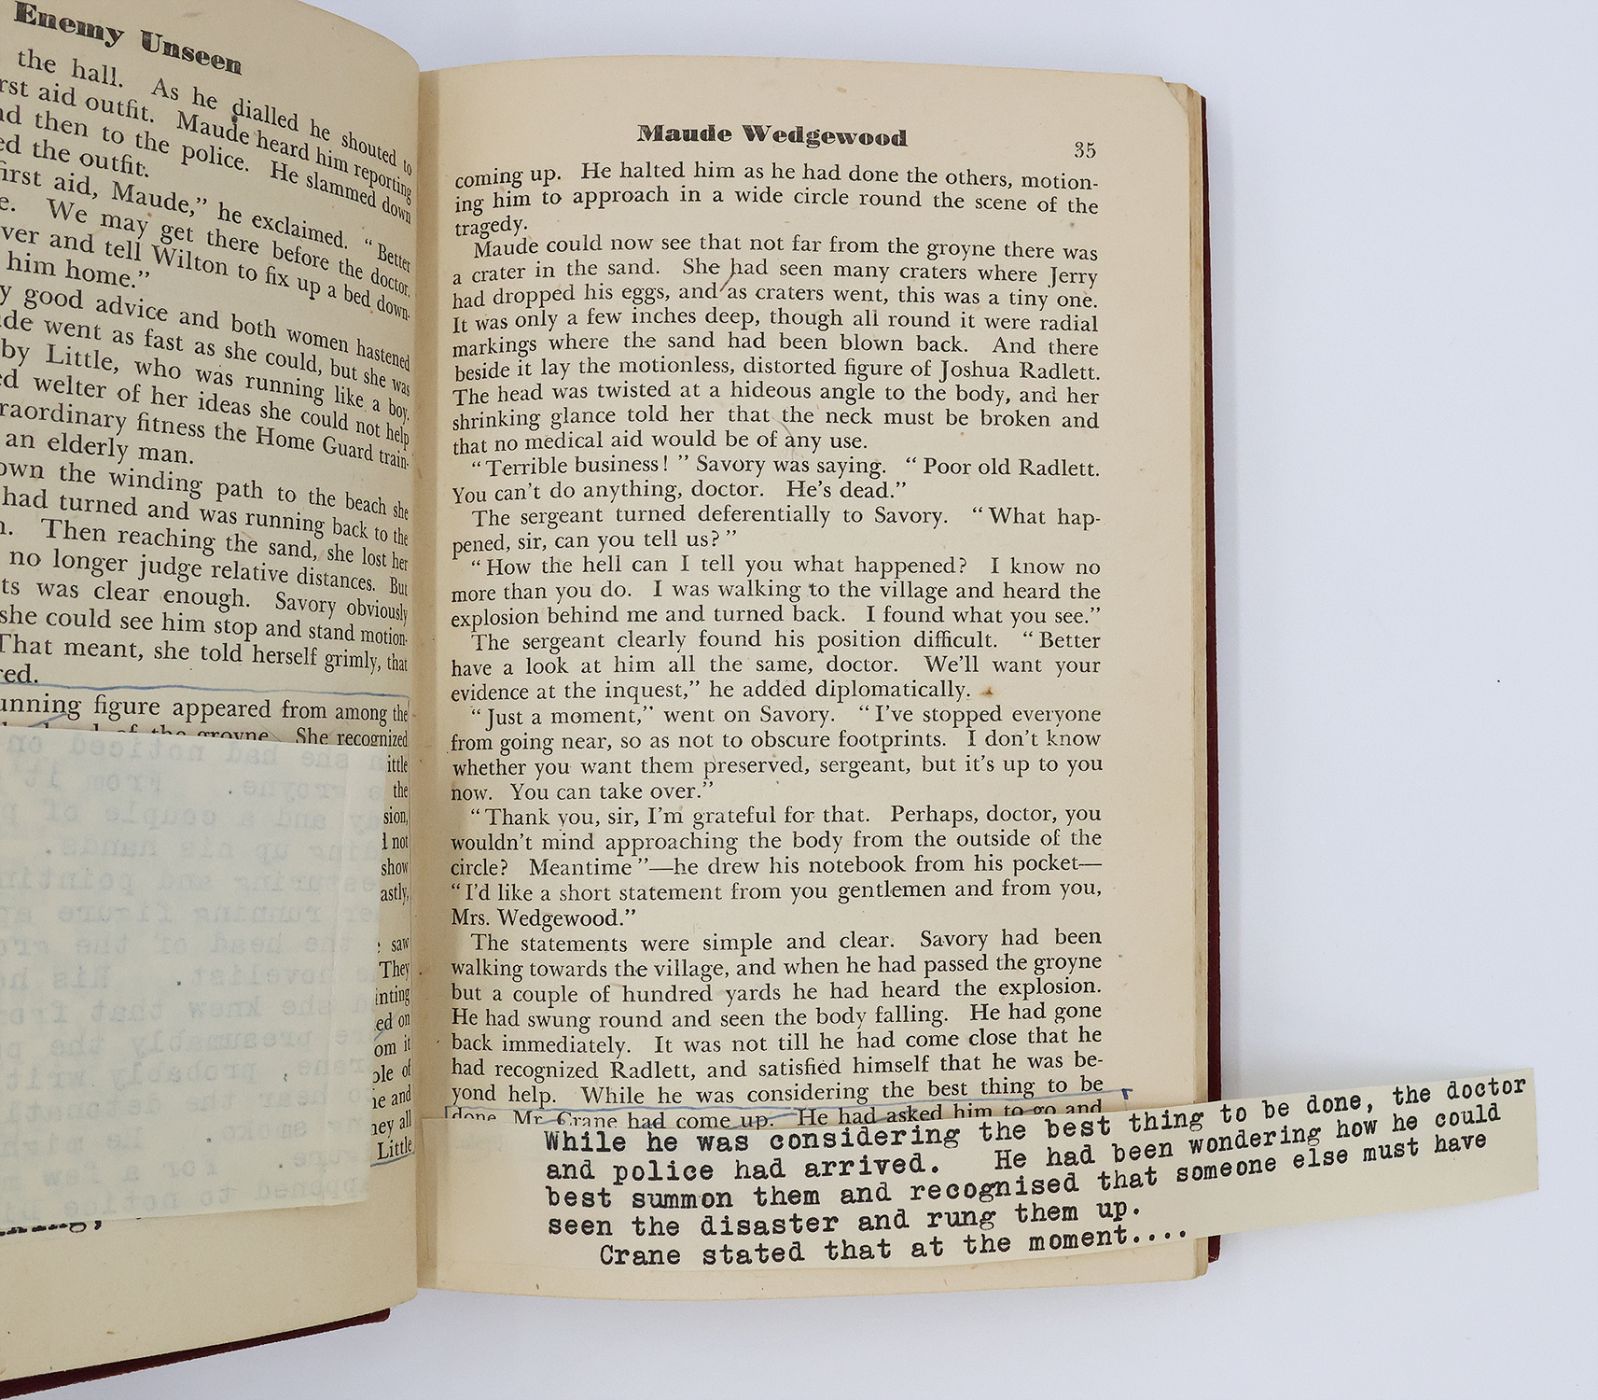 Enemy Unseen
the hall. As he dialled he shouted to
rst aid outfit. Maude heard him reporting
nd then to the police. He slammed down
ed the outfit.
first aid, Maude," he exclaimed. "Better
e. We may get there before the doctor.
ver and tell Wilton to fix up a bed down-
him home."
y good advice and both women hastened
de went as fast as she could, but she was
by Little, who was running like a boy.
ed welter of her ideas she could not help
raordinary fitness the Home Guard train-
an elderly man.
own the winding path to the beach she
had turned and was running back to the
n. Then reaching the sand, she lost her
no longer judge relative distances. But
ts was clear enough. Savory obviously
she could see him stop and stand motion-
That meant, she told herself grimly, that
red.
unning figure appeared from among the
of the groyne. She recognized
ittle
the
sion,
d not
show
astly,
saw
They
inting
ed on
om it
ple of
ne and
hey all
Little
Maude Wedgewood
35
coming up. He halted him as he had done the others, motion-
ing him to approach in a wide circle round the scene of the
tragedy.
Maude could now see that not far from the groyne there was
a crater in the sand. She had seen many craters where Jerry
had dropped his eggs, and as craters went, this was a tiny one.
It was only a few inches deep, though all round it were radial
markings where the sand had been blown back. And there
beside it lay the motionless, distorted figure of Joshua Radlett.
The head was twisted at a hideous angle to the body, and her
shrinking glance told her that the neck must be broken and
that no medical aid would be of any use.
"Terrible business!" Savory was saying. "Poor old Radlett.
You can't do anything, doctor. He's dead."
The sergeant turned deferentially to Savory. "What hap-
pened, sir, can you tell us?"
"How the hell can I tell you what happened? I know no
more than you do. I was walking to the village and heard the
explosion behind me and turned back. I found what you see."
The sergeant clearly found his position difficult. "Better
have a look at him all the same, doctor. We'll want your
evidence at the inquest," he added diplomatically.
"Just a moment," went on Savory. "I've stopped everyone
from going near, so as not to obscure footprints. I don't know
whether you want them preserved, sergeant, but it's up to you
now. You can take over."
"Thank you, sir, I'm grateful for that. Perhaps, doctor, you
wouldn't mind approaching the body from the outside of the
circle? Meantime"—he drew his notebook from his pocket—
"I'd like a short statement from you gentlemen and from you,
Mrs. Wedgewood."
The statements were simple and clear. Savory had been
walking towards the village, and when he had passed the groyne
but a couple of hundred yards he had heard the explosion.
He had swung round and seen the body falling. He had gone
back immediately. It was not till he had come close that he
had recognized Radlett, and satisfied himself that he was be-
yond help. While he was considering the best thing to be
done, Mr. Crane had come up. He had asked him to go and
While he was considering the best thing to be done, the doctor
and police had arrived. He had been wondering how he could
best summon them and recognised that someone else must have
seen the disaster and rung them up.
Crane stated that at the moment....